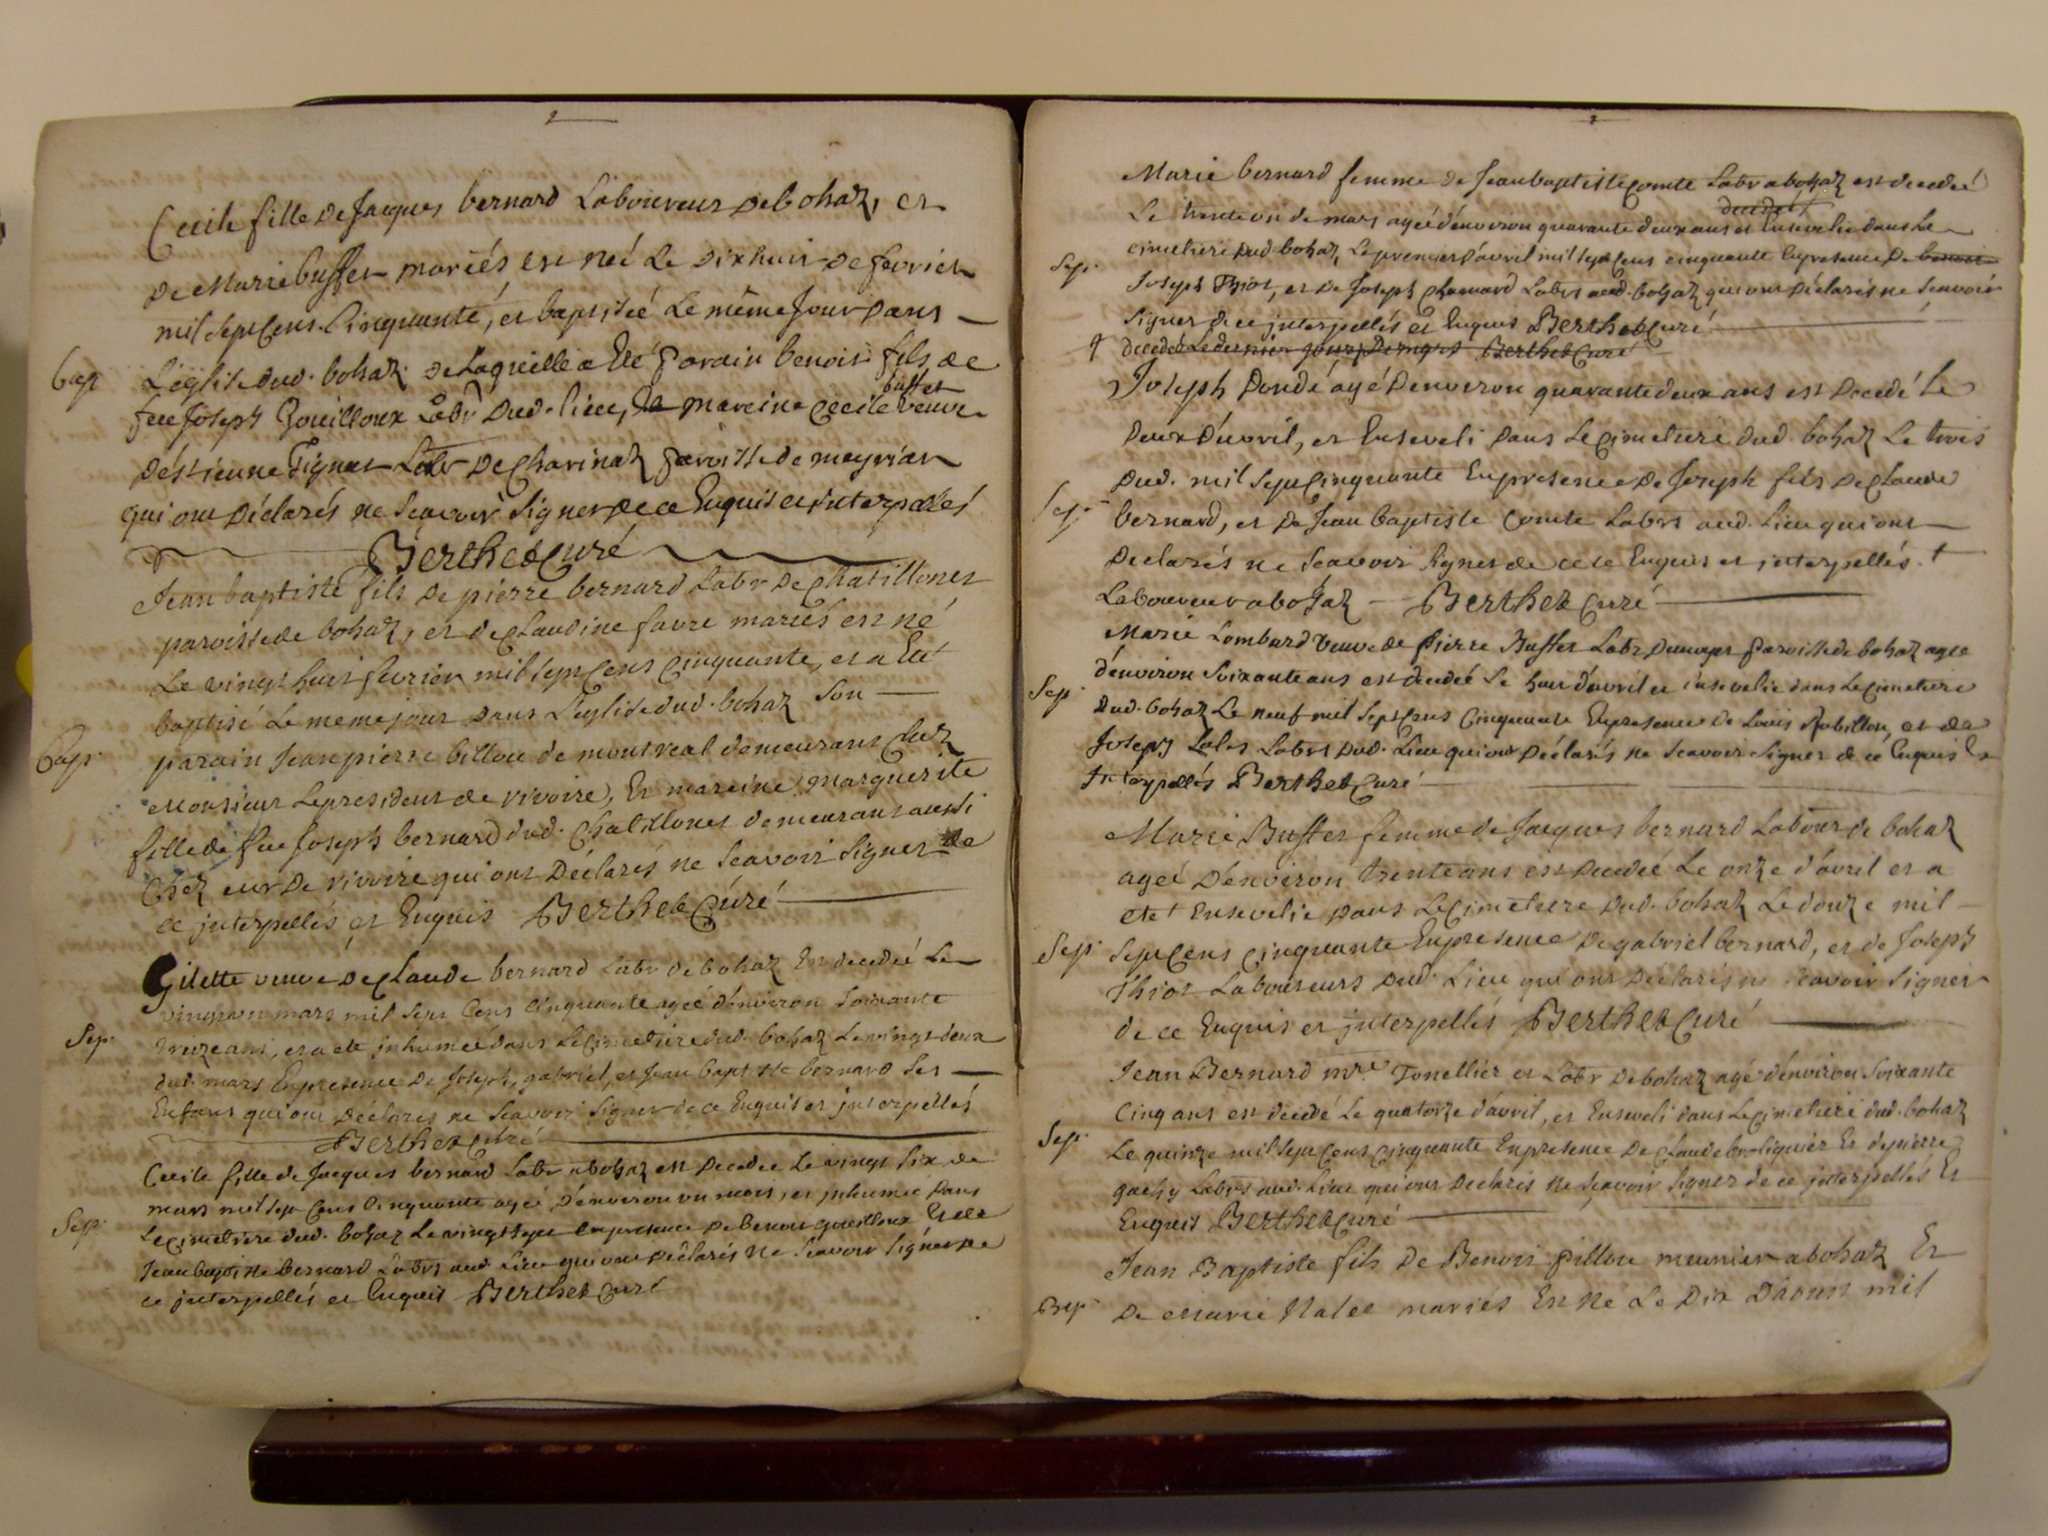 2
Cecile fille de Jacques bernard Laboureur de bohaz, et
de Marie buffet mariés est née Le dixhuit de fevrier
mil sept Cens Cinquante, et baptisée Le même Jour dans
Bap
L'église dud. bohaz de Laquelle a Eté parain benoit fils de
buffet
feu Joseph Gouilloux Labr dud. lieu, La mareine Cecile veuve
d'éstienne Tignat Labr de Charinaz paroisse de meyriat
qui ont déclarés ne Scavoir Signer de ce Enquis et interpellés
Berthet Curé
Jean baptiste fils de pierre bernard Labr de Chatillonet
paroisse de bohaz, et de Claudine favre mariés est né
Le vingt huit fevrier mil sept Cens Cinquante, et a Eté
baptisé Le meme jour dans L'eglise dud. bohaz Son
Bap.
parain Jean pierre billou de montreal demeurant Chez
Monsieur Le president de vivoire, Et mareine marguerite
fille de feu Joseph bernard dud. Chatillonet demeurant aussi
Chez eux De vivoire qui ont Déclarés ne Scavoir Signer de
ce interpellés et Enquis Berthet Curé
Gilette veuve de Claude bernard Labr de bohaz Est decedeé Le
vingt un mars mil sept Cens Cinquante ageé d'environ Soixante
Sep.
treize ans, et a eté inhumeé dans Le Cimetiere dud. bohaz Le vingt deux
dud. mars En presence de Joseph, gabriel, et Jean baptiste bernard Ses
Enfans qui ont Déclarés ne Scavoir Signer de ce Enquis et interpellés
Berthet Curé
Cecile fille de Jacques bernard Labr a bohaz est Decedeé Le vingt Six de
mars mil sept Cens Cinquante ageé D'environ un mois, et inhumeé Dans
Sep.
Le Cimetiere dud. bohaz Le vingt Sept en presence de benoit gouilloux Et de
Jean baptiste bernard Labrs aud. Lieu qui ont Déclarés ne Scavoir Signer de
ce interpellés et Enquis Berthet Curé
2
Marie bernard femme de Jean baptiste Comte Labr a bohaz est decedeé
Le trente un de mars ageé d'environ quarante deux ans et Ensevelie dans Le
cimetiere dud. bohaz, Le premier d'avril mil sept Cens cinquante En presence De benoit
Sep.
Joseph Thiot, et de Joseph Chanard Labrs aud. bohaz qui ont Déclarés ne Scavoir
Signer de ce interpellés et Enquis Berthet Curé
decedeé Le dernier jour De mars Berthet Curé
Joseph Dondé agé D'environ quarante deux ans est Decedé Le
Deux D'avril, et Enseveli Dans Le Cimetiere dud. bohaz Le trois
dud. mil Sept Cinquante En presence De Joseph fils De Claude
Sep.
bernard, et De Jean baptiste Comte Labrs aud. Lieu qui ont
Declarés ne Scavoir Signer de ce Enquis et interpellés. †
Laboureur a bohaz Berthet Curé
Marie Lombard veuve de pierre Buffet Labr paroisse de bohaz ageé
Sep.
d'environ Soixante ans est decedeé Le huit d'avril et ensevelie dans Le Cimetiere
dud. bohaz Le neuf mil Sept Cens Cinquante En presence de Louis Robillon, et de
Joseph Labrs dud. Lieu qui ont Déclarés ne Scavoir Signer de ce Enquis Et
Interpellés Berthet Curé
Marie Buffet femme de Jacques bernard Labour de bohaz
ageé D'environ trente ans est Decedeé Le onze d'avril et a
eté Ensevelie Dans Le Cimetiere dud. bohaz Le douze mil
Sep.
Sept Cens Cinquante En presence De gabriel bernard, et de Joseph
Thiot Laboureurs dud. Lieu qui ont Déclarés ne Scavoir Signer
de ce Enquis et interpellés Berthet Curé
Jean Bernard mre Tonellier et Labr De bohaz agé d'environ Soixante
Cinq ans est decedé Le quatorze d'avril, et Enseveli dans Le Cimetiere dud. bohaz
Sep.
Le quinze mil Sept Cens Cinquante En presence De Claude broliquier Et de pierre
gachy Labrs aud. Lieu qui ont Declarés ne Scavoir Signer de ce interpellés Et
Enquis Berthet Curé
Jean Baptiste fils De Benoit pillou meunier a bohaz Et
Bap.
De Marie Nalet mariés Est Né Le Dix D'aoust mil